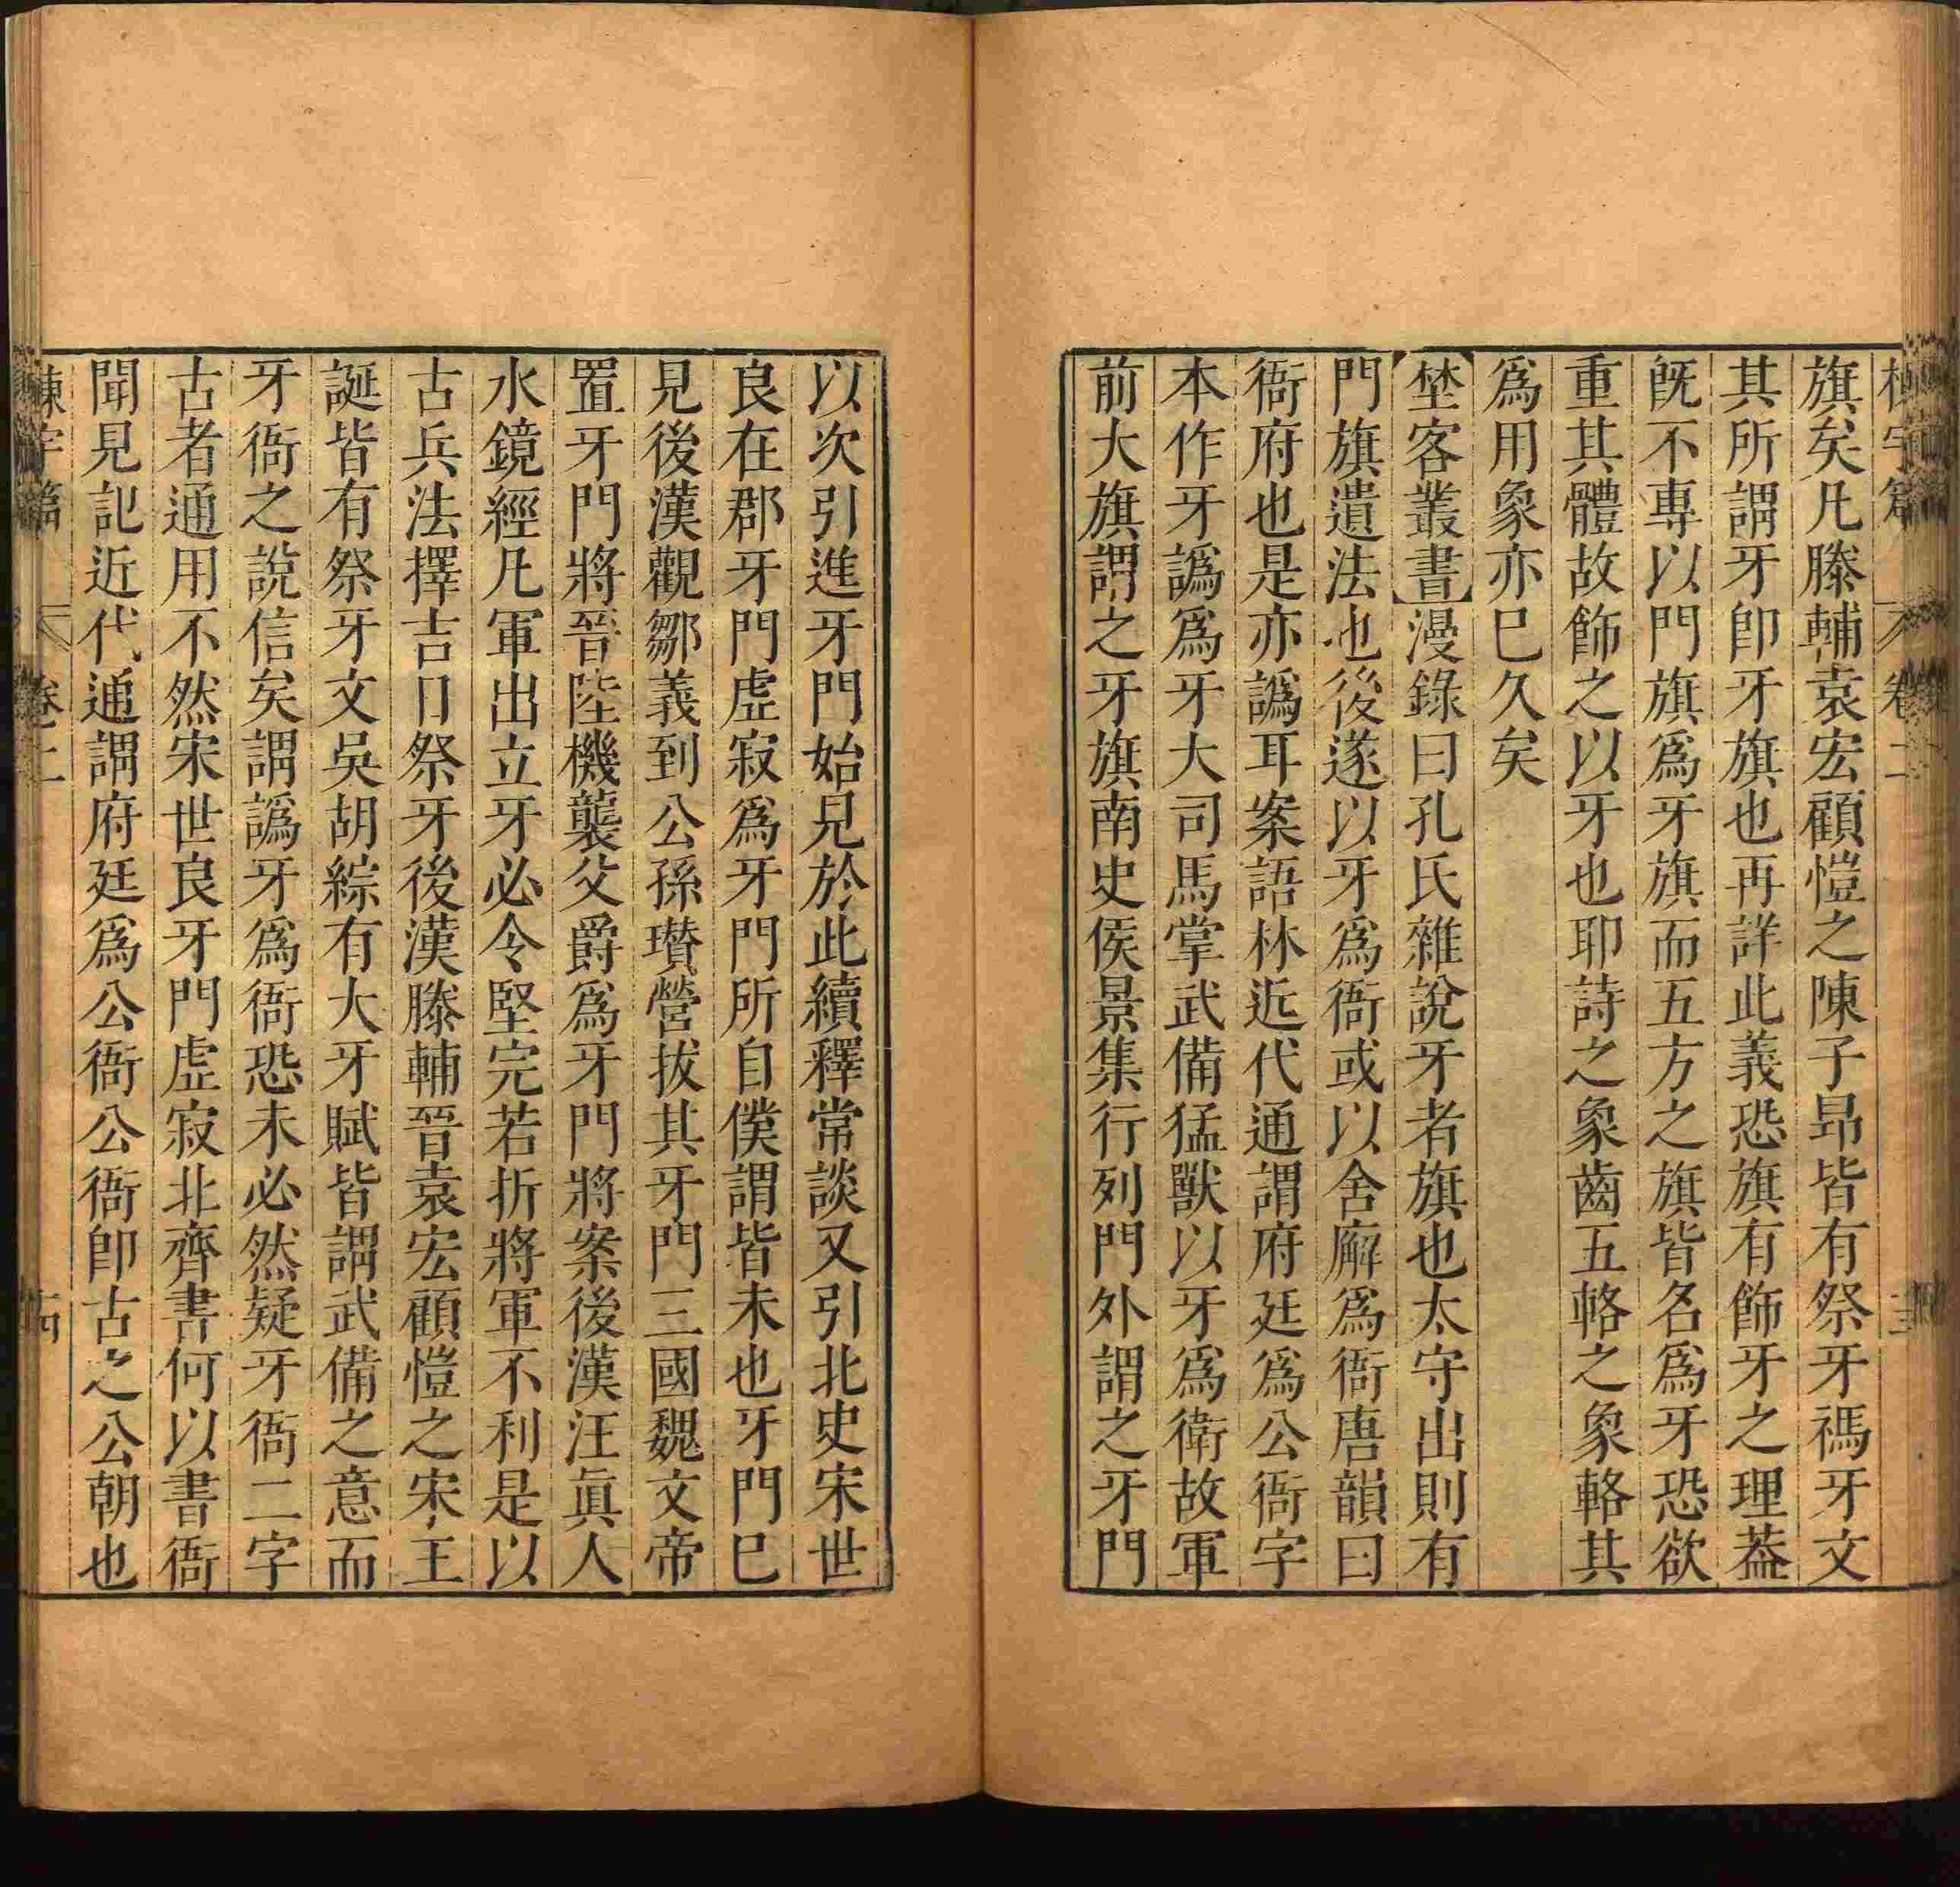 旗矣凡滕輔袁宏顧愷之陳子昂皆有祭牙禡牙文
其所謂牙卽牙旗也再詳此義恐旗有飾牙之理葢
旣不專以門旗爲牙旗而五方之旗皆名爲牙恐欲
重其體故飾之以牙也耶詩之象齒五輅之象輅其
爲用象亦巳久矣
埜客叢書漫錄曰孔氏雜說牙者旗也太守出則有
門旗遺法也後遂以牙爲衙或以舍廨爲衙唐韻曰
衙府也是亦譌耳案語林近代通謂府廷爲公衙字
本作牙譌爲牙大司馬掌武備猛獸以牙爲衛故軍
前大旗謂之牙旗南史侯景集行列門外謂之牙門
以次引進牙門始見於此續釋常談又引北史宋世
良在郡牙門虛寂爲牙門所自僕謂皆未也牙門巳
見後漢觀鄒義到公孫瓚營拔其牙門三國魏文帝
置牙門將晉陸機襲父爵爲牙門將案後漢汪眞人
水鏡經凡軍出立牙必令堅完若折將軍不利是以
古兵法擇吉日祭牙後漢滕輔晉袁宏顧愷之宋王
誕皆有祭牙文吳胡綜有大牙賦皆謂武備之意而
牙衙之說信矣謂譌牙爲衙恐未必然疑牙衙二字
古者通用不然宋世良牙門虛寂北齊書何以書衙
聞見記近代通謂府廷爲公衙公衙卽古之公朝也